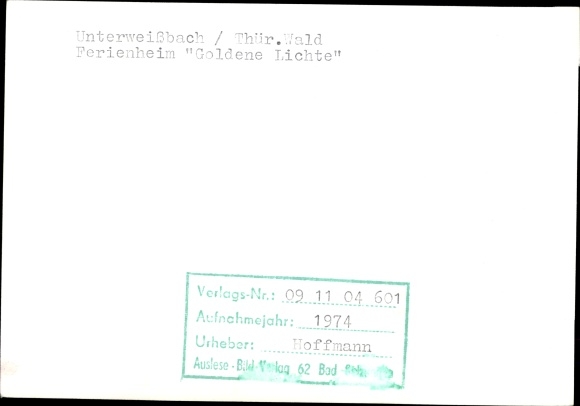 Unterweißbach / Thür.Wald
Ferienheim "Goldene Lichte"
Verlags-Nr.: 09 11 04 601
Aufnahmejahr: 1974
Urheber: Hoffmann
Auslese-Bild-Verlag 62 Bad